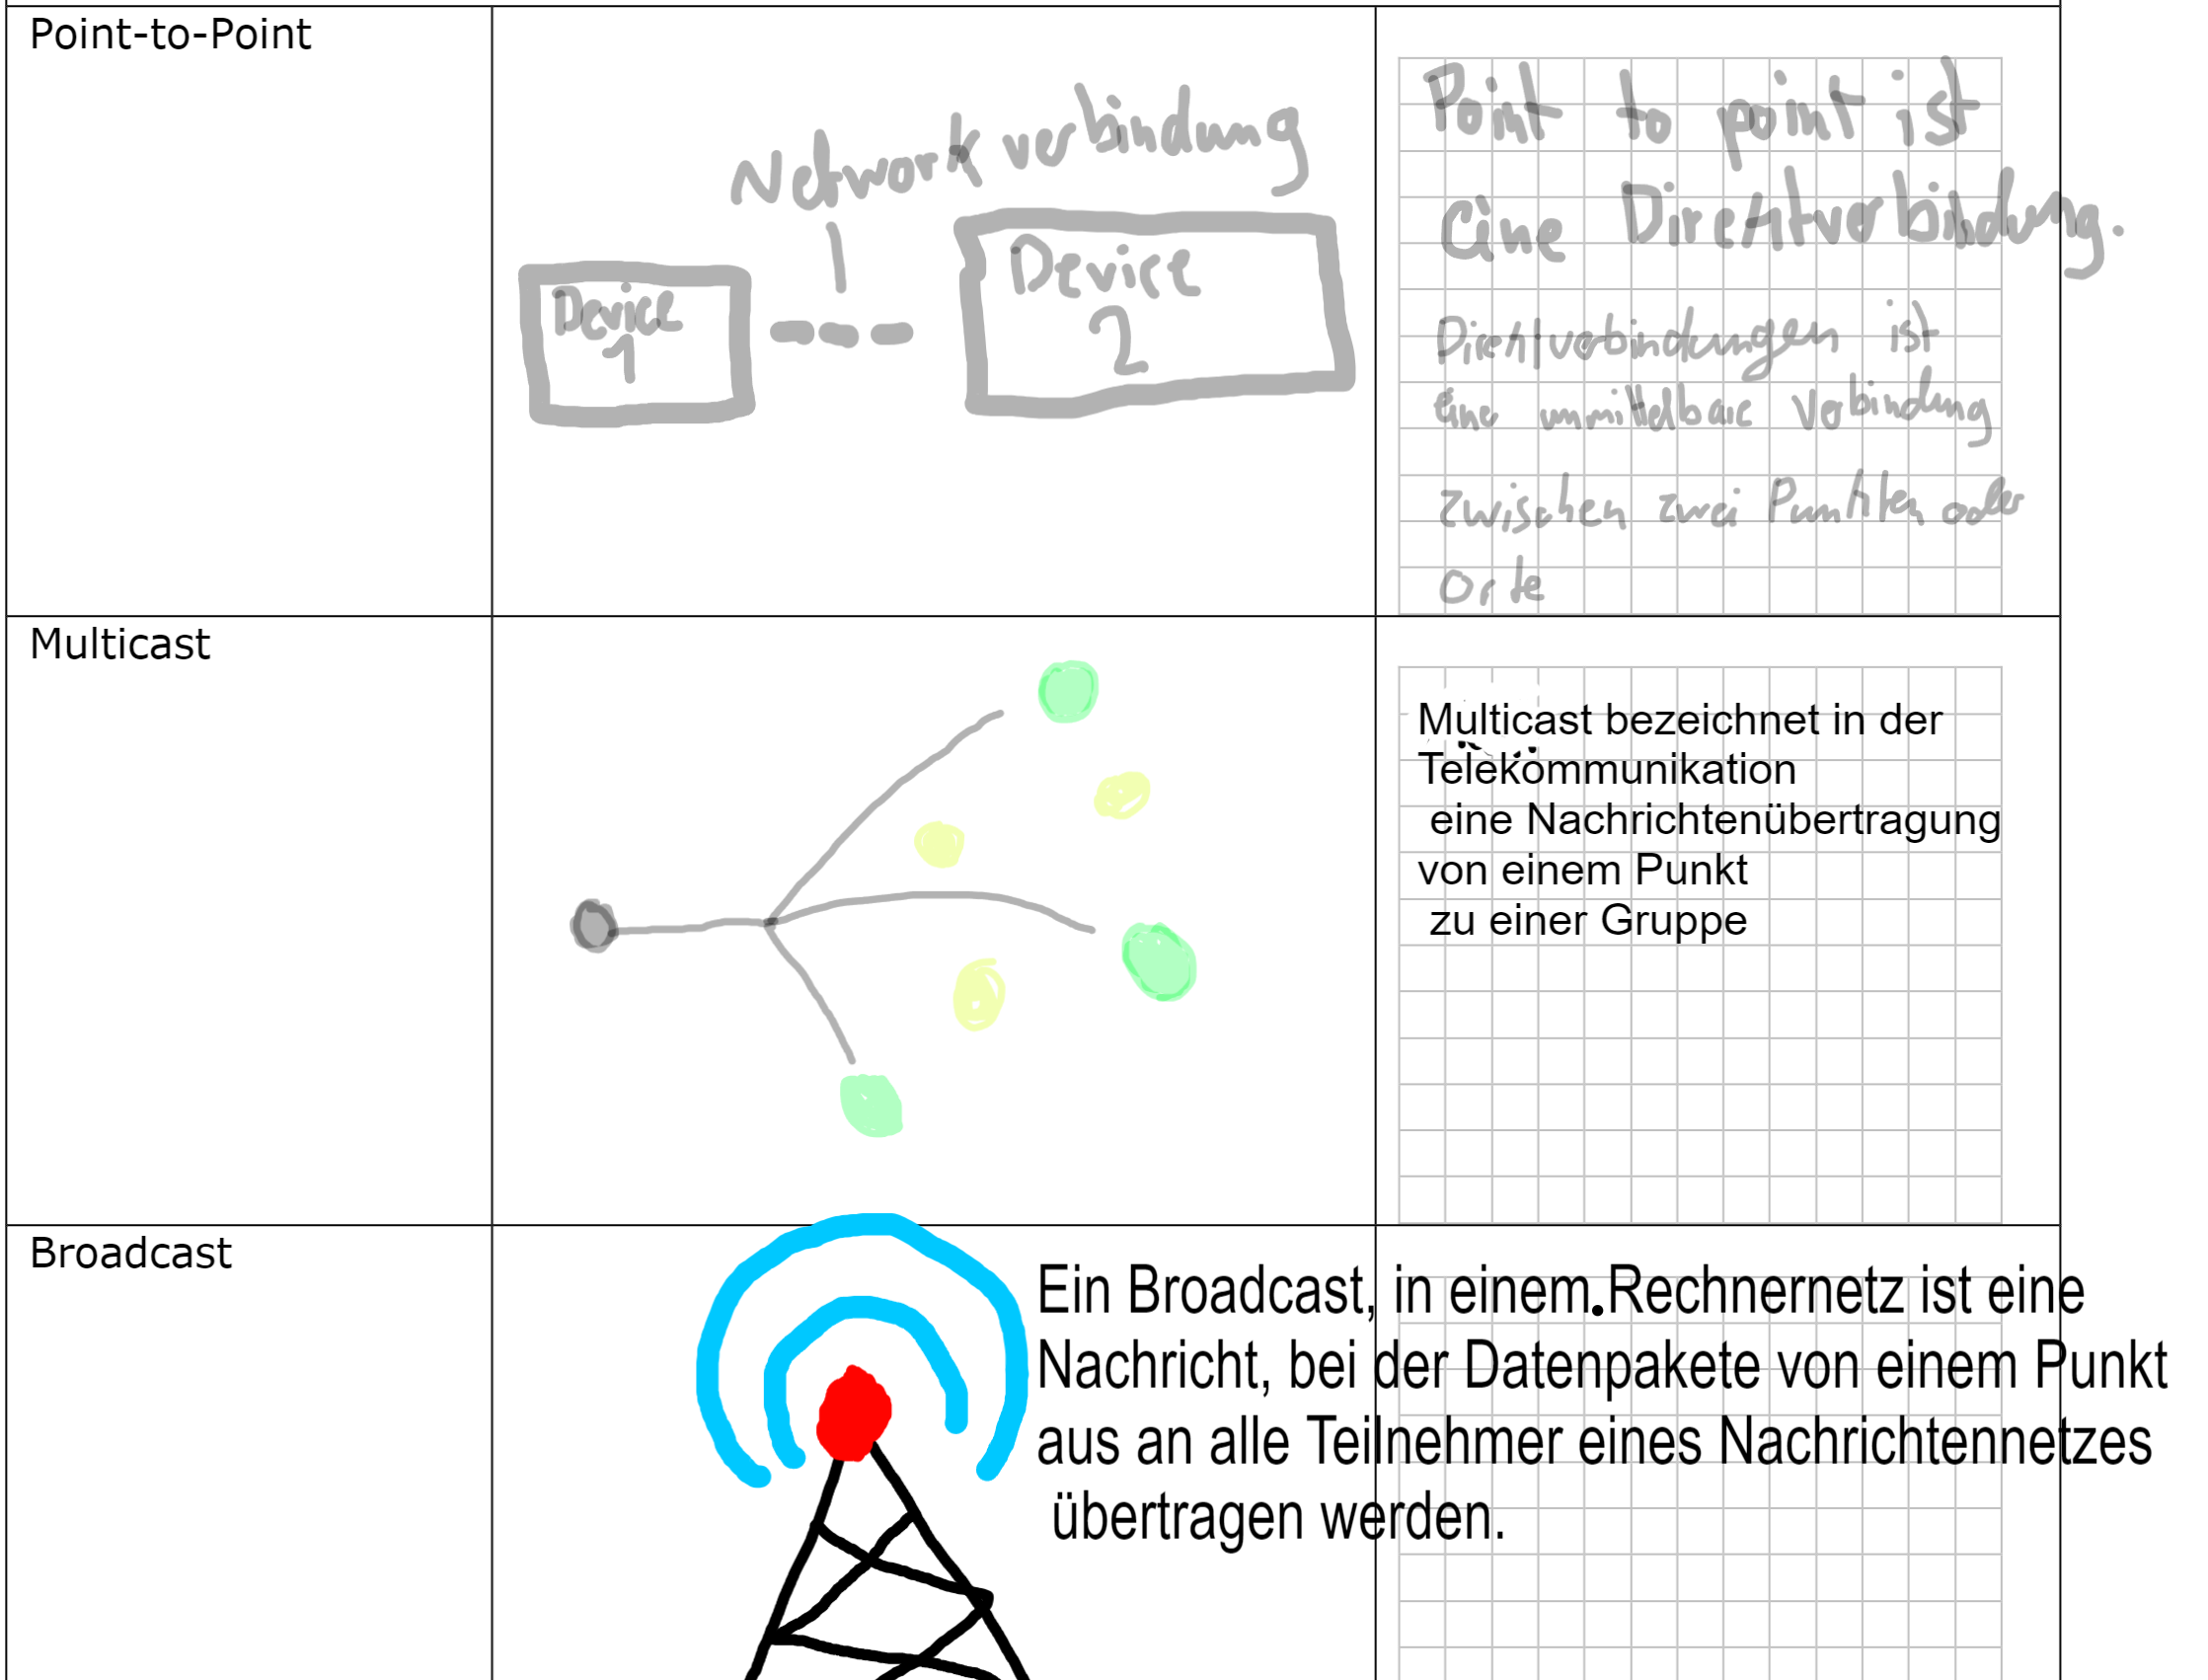 Point-to-Point
Network verbindung
Device
1
Device
2
Point to point ist
eine Direktverbindung.
Direktverbindungen ist
eine unmittelbare Verbindung
zwischen zwei Punkten oder
Orte
Multicast
Multicast bezeichnet in der
Telekommunikation
eine Nachrichtenübertragung
von einem Punkt
zu einer Gruppe
Broadcast
Ein Broadcast, in einem Rechnernetz ist eine
Nachricht, bei der Datenpakete von einem Punkt
aus an alle Teilnehmer eines Nachrichtennetzes
übertragen werden.